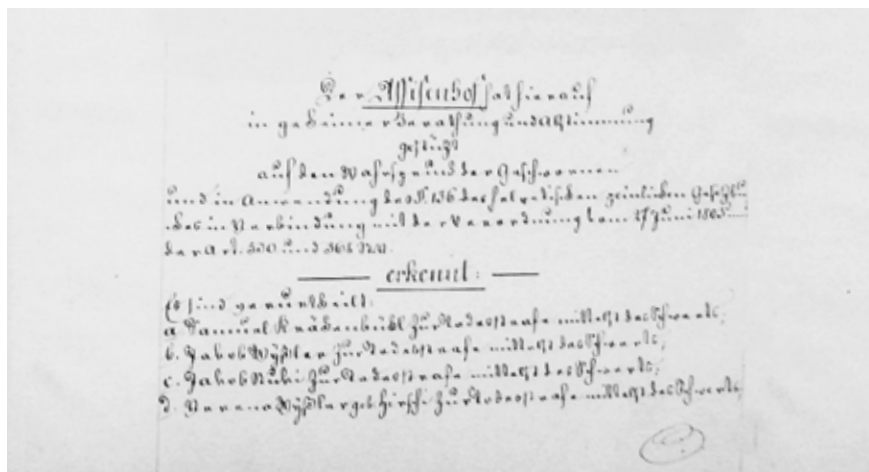 Der Assisenhof hat hierauf
in geheimer Berathung und Abstimmung
gestüzt
auf den Wahrspruch der Geschwornen
und in Anwendung des §. 156 des helvetischen peinlichen Gesetzbu-
ches in Verbindung mit der Verordnung vom 27 Juni 1803
der Art. und 368
erkennt:
Es sind verurtheilt:
a Samuel Krähenbühl zur Todesstrafe mittelst des Schwerts,
b. Jakob Wyßler zur Todesstrafe mittelst des Schwerts,
c. Jakob zur Todesstrafe mittelst des Schwerts,
d. Verena Wyßler geb. Hirschi zur Todesstrafe mittelst des Schwerts,